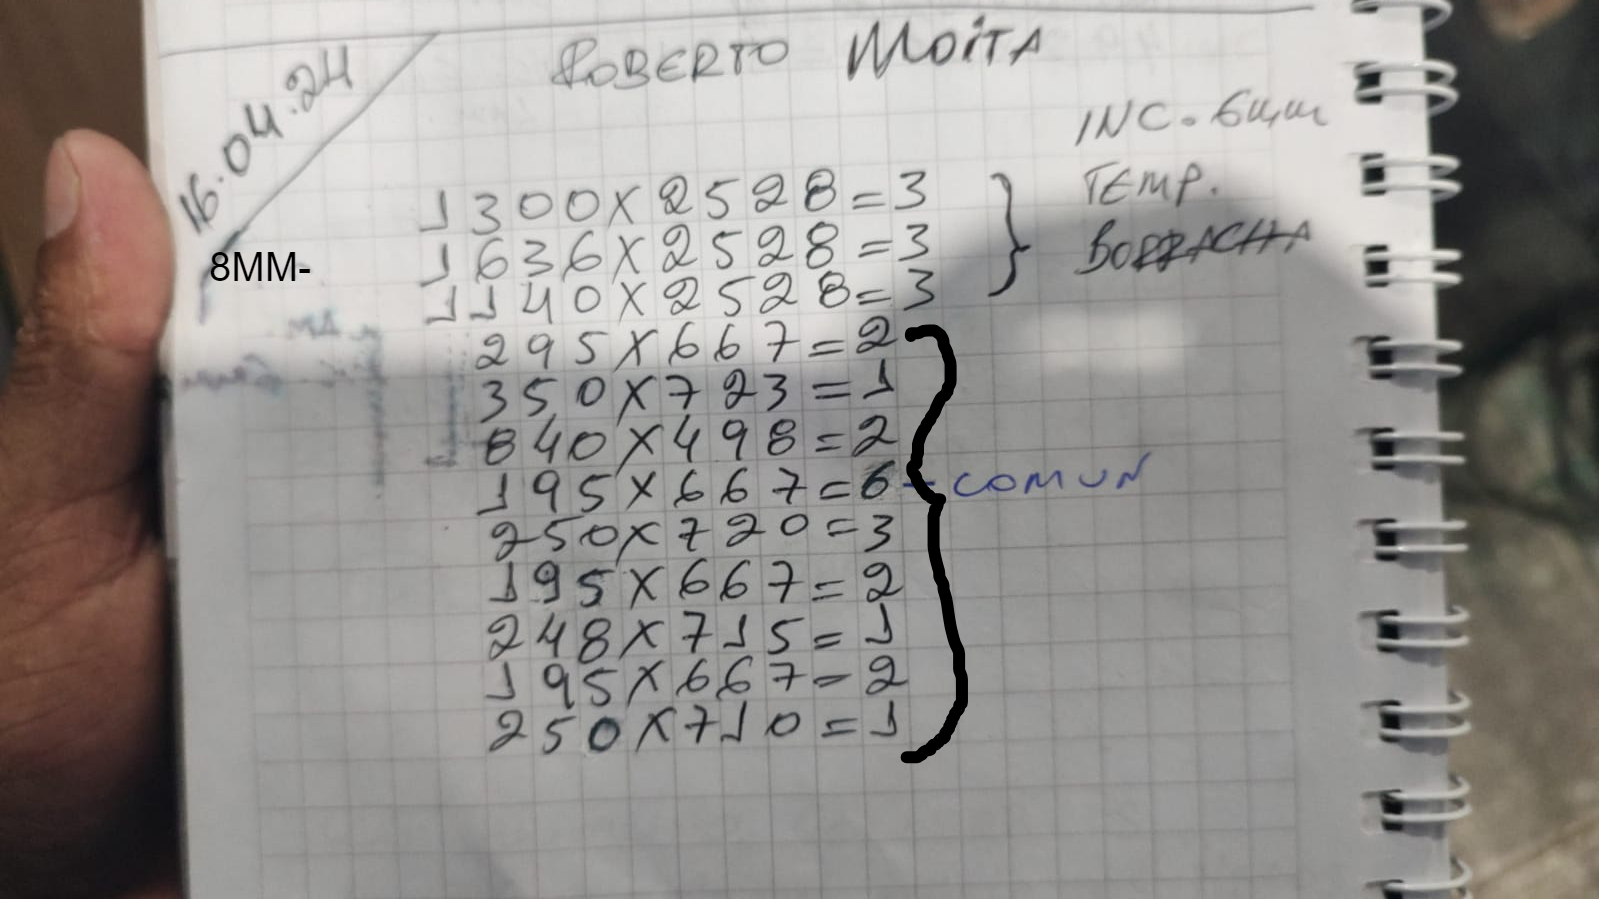 16.04.24
ROBERTO MOITA
INC. 6mm
TEMP.
BORRACHA
8MM-
1300X2528=3
1636X2528=3
1140X2528=3
295X667=2
350X723=1
840X498=2
195X667=6 - COMUN
250X720=3
195X667=2
248X715=1
195X667=2
250X710=1